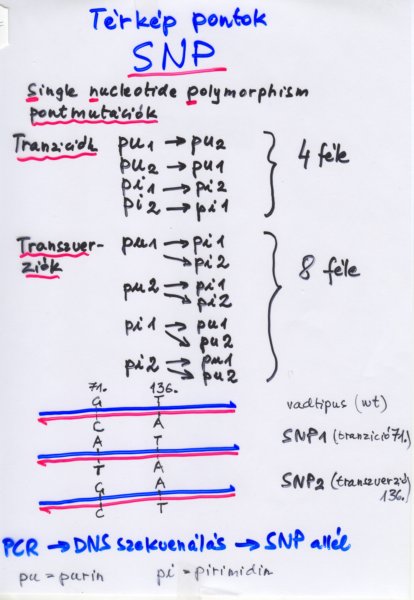 Térkép pontok
SNP
Single nucleotide polymorphism
pontmutációk
Tranziciók
pu1 → pu2
pu2 → pu1
pi1 → pi2
pi2 → pi1
4 féle
Transzver-
ziók
pu1 → pi1
→ pi2
pu2 → pi1
→ pi2
pi1 → pu1
→ pu2
pi2 → pu1
→ pu2
8 féle
71. 136.
G T
vadtipus (wt)
C A
A T
SNP1 (tranzició 71.)
T A
G A
SNP2 (transzverzió
136.)
C T
PCR → DNS szekvenálás → SNP allél
pu = purin pi = pirimidin